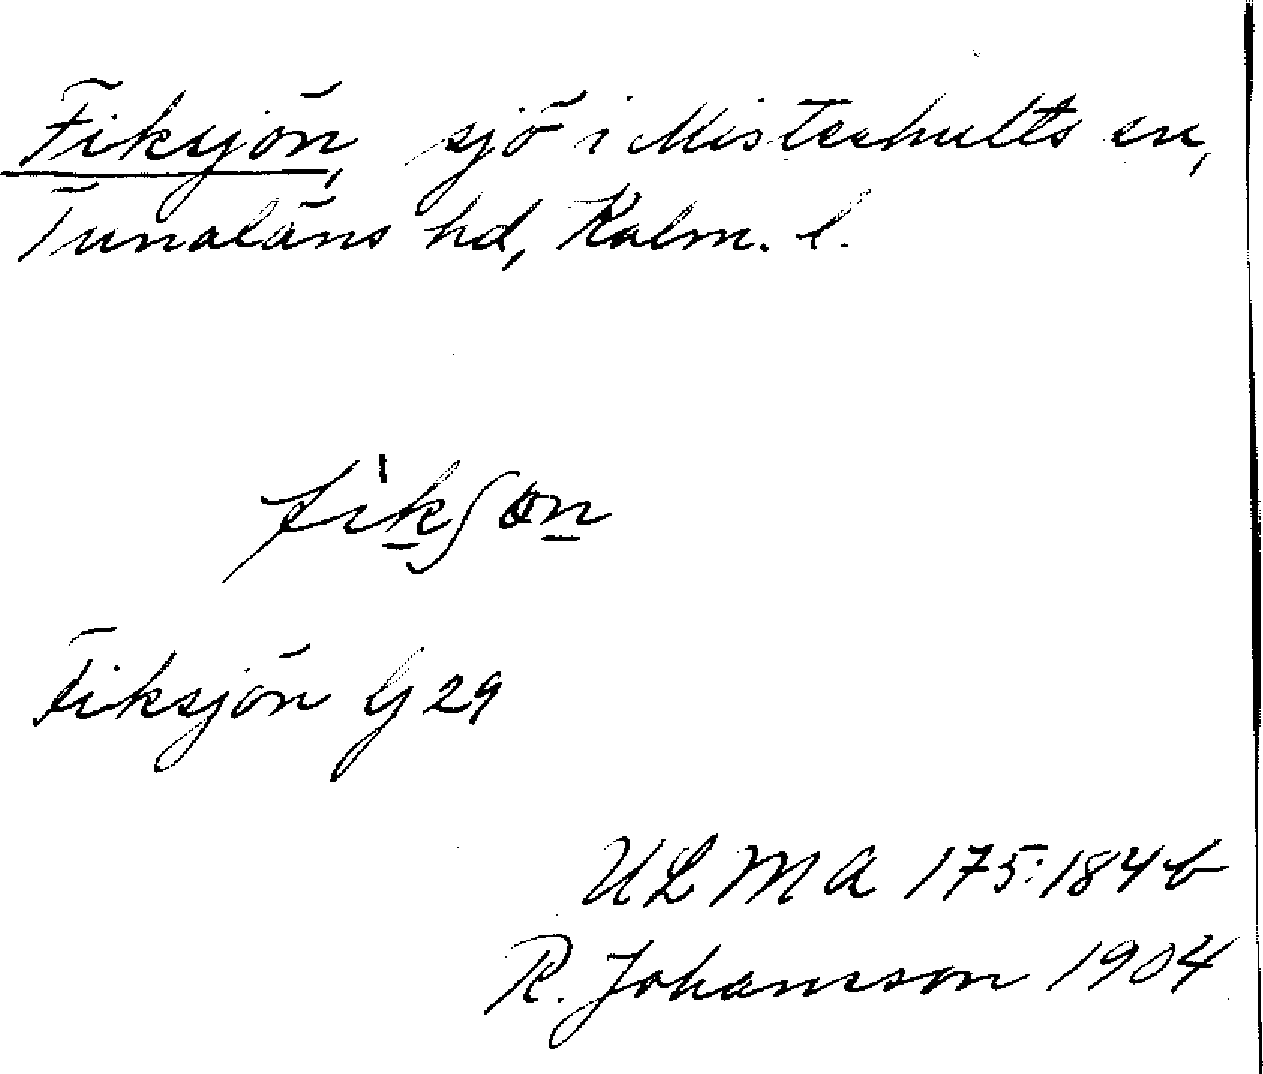 Fiksjön, sjö i Misterhults sn,
Tunaläns hd, Kalm. l.
fikʃön
Fiksjön G 29
ULMA 175:184 b
R. Johansson 1904